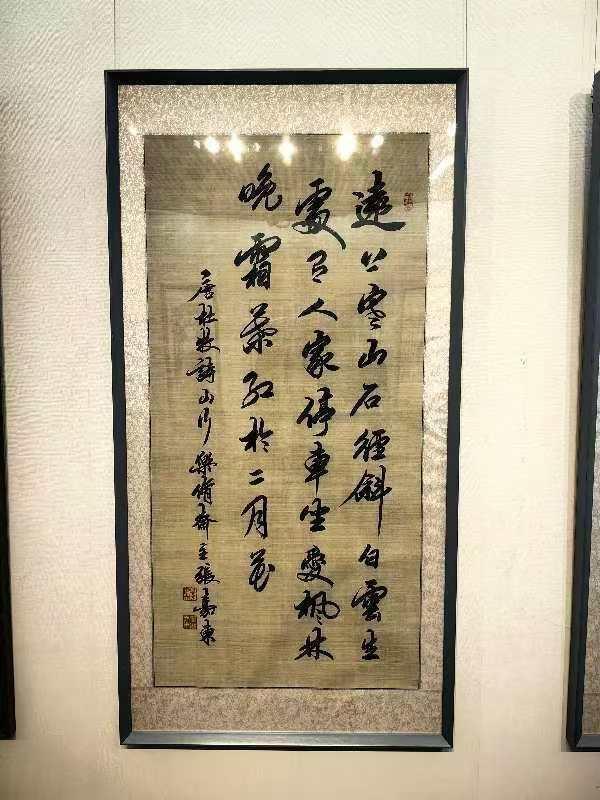 遠上寒山石徑斜白雲生
處有人家停車坐愛楓林
晚霜葉紅於二月花
唐杜牧詩山行樂脩齋主張嘉東